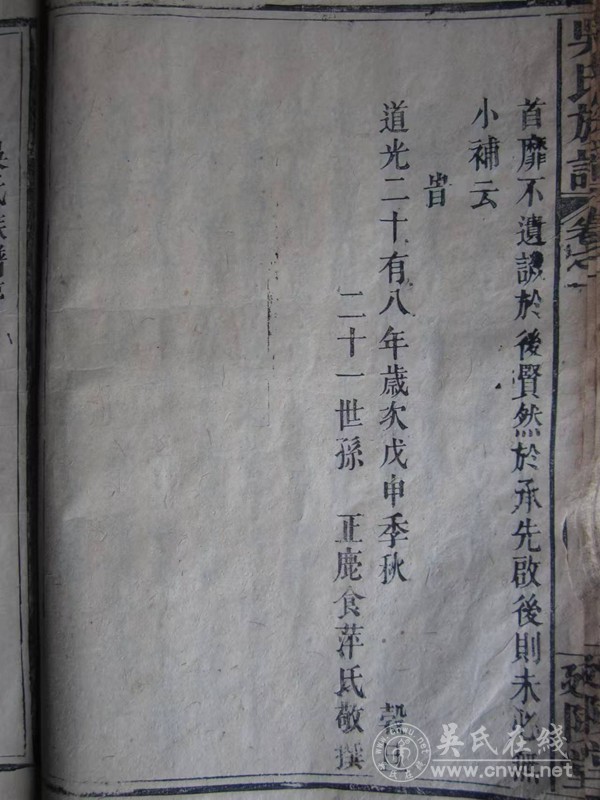 吳氏族譜 卷之一
首靡不遺誚於後賢然於承先啟後則未必無
小補云
旹
道光二十有八年歲次戊申季秋 穀旦
二十一世孫 正鹿食萍氏敬撰
延陵堂
吳氏族譜
吳氏在线
www.cnwu.net